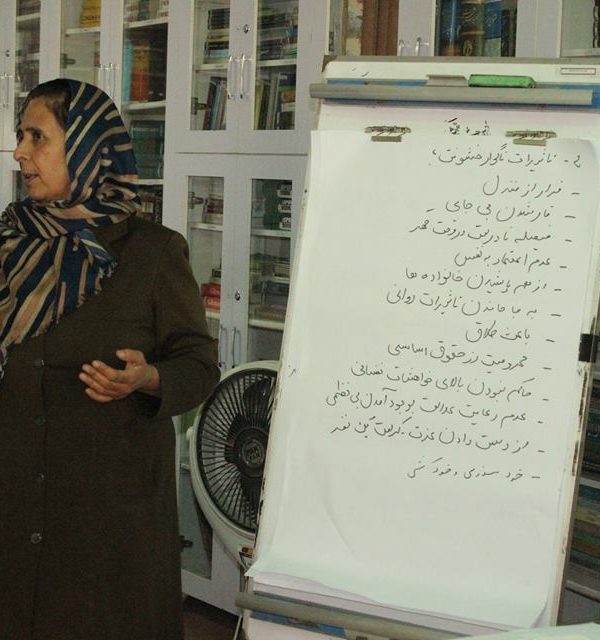 ۲- تاثیرات ناگوار خشونت:
- فرار از منزل
- فیصله نادرست در وقت قهر
- عدم اعتماد به نفس
- از هم پاشیدن خانواده ها
- به جا ماندن تاثیرات روانی
- باعث طلاق
- محرومیت از حقوق اساسی
- حاکم نبودن بالای خواهشات نفسانی
- عدم رعایت عدالت بوجود آمدن بی نظمی
- از دست دادن عزت
- خود سوزی و خود کشی